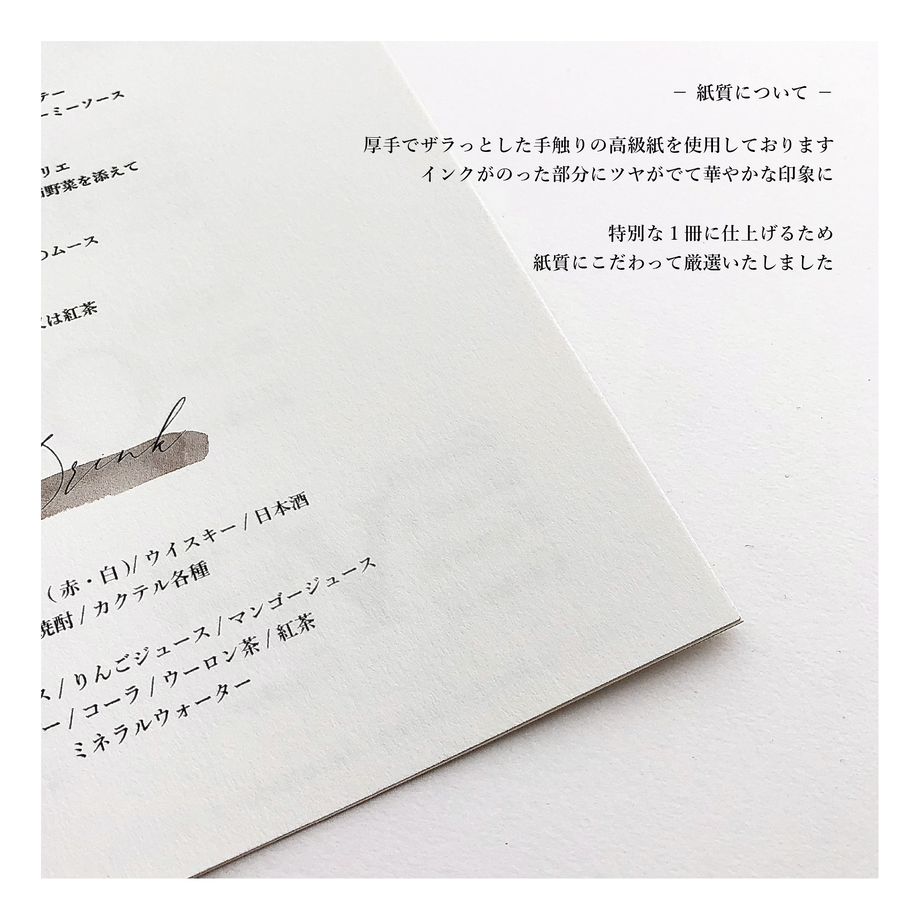 − 紙質について −
厚手でザラっとした手触りの高級紙を使用しております
インクがのった部分にツヤがでて華やかな印象に
特別な１冊に仕上げるため
紙質にこだわって厳選いたしました
テー
ーミーソース
リエ
野菜を添えて
ムース
は紅茶
Drink
(赤・白)/ウイスキー/日本酒
焼酎/カクテル各種
ス/りんごジュース/マンゴージュース
ー/コーラ/ウーロン茶/紅茶
ミネラルウォーター